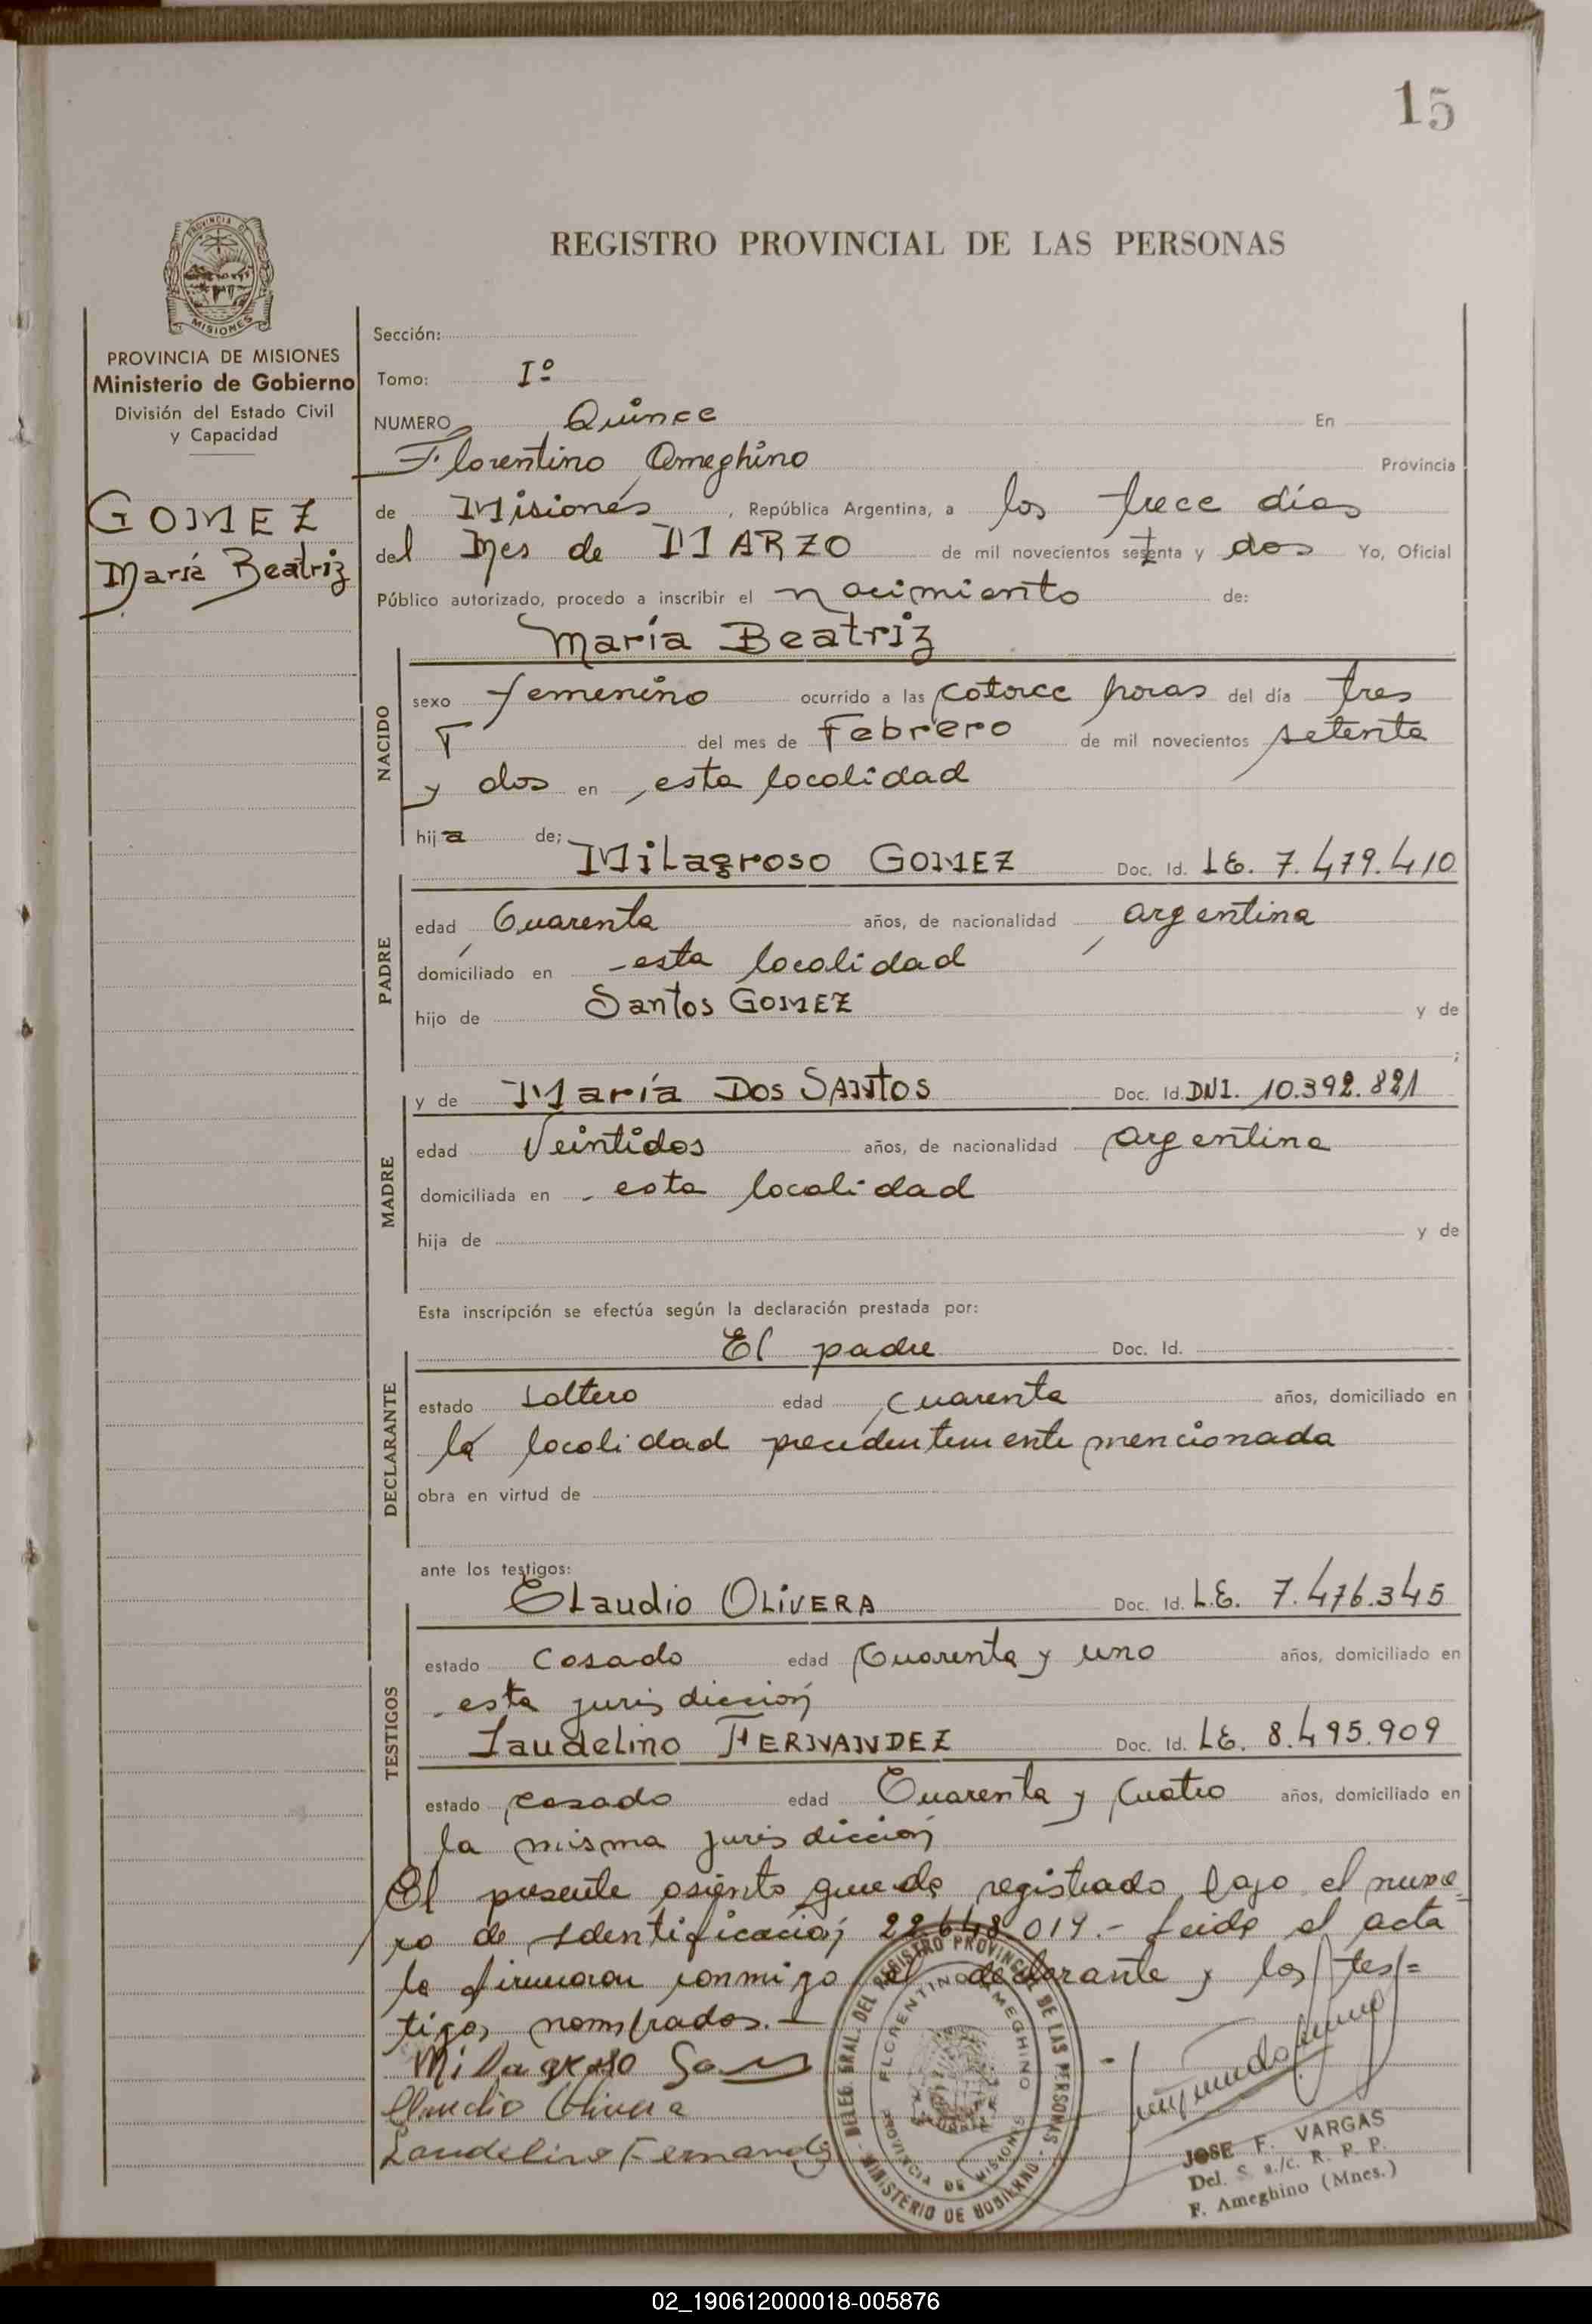 15
REGISTRO PROVINCIAL DE LAS PERSONAS
PROVINCIA DE
MISIONES
PROVINCIA DE MISIONES
Ministerio de Gobierno
División del Estado Civil
y Capacidad
GOMEZ
María Beatriz
Sección:
Tomo: Iº
NUMERO Quince En
Florentino Ameghino Provincia
de Misiones, República Argentina, a los trece días
del Mes de MARZO de mil novecientos setenta y dos Yo, Oficial
Público autorizado, procedo a inscribir el nacimiento de:
María Beatriz
NACIDO
sexo femenino ocurrido a las catorce horas del día tres
del mes de Febrero de mil novecientos setenta
y dos en esta localidad
hija de;
Milagroso GOMEZ Doc. Id. LE. 7.479.410
PADRE
edad Cuarenta años, de nacionalidad argentina
domiciliado en esta localidad
hijo de Santos GOMEZ y de
;
y de María Dos SANtOS Doc. Id. DNI. 10.392.821
MADRE
edad Veintidos años, de nacionalidad argentina
domiciliada en esta localidad
hija de y de
Esta inscripción se efectúa según la declaración prestada por:
El padre Doc. Id.
DECLARANTE
estado soltero edad cuarenta años, domiciliado en
la localidad precedentemente mencionada
obra en virtud de
ante los testigos:
Claudio OLIVERA Doc. Id. L.E. 7.476.345
TESTIGOS
estado Casado edad Cuarenta y uno años, domiciliado en
esta jurisdicción
Laudelino FERNANDEZ Doc. Id. LE. 8.495.909
estado casado edad Cuarenta y Cuatro años, domiciliado en
la misma jurisdicción
El presente asiento queda registrado bajo el nume=
ro de identificación 22.648.019.- Leida el acta
la firmaron conmigo el declarante y los tes=
tigos nombrados.-
Milagroso
Claudio Olivera
Laudelino Fernandez
DELEG. GRAL. DEL REGISTRO PROVINCIAL DE LAS PERSONAS
MINISTERIO DE GOBIERNO
FLORENTINO AMEGHINO
PROVINCIA DE MISIONES
JOSE F. VARGAS
Del. S. a./c. R. P. P.
F. Ameghino (Mnes.)
02_190612000018-005876